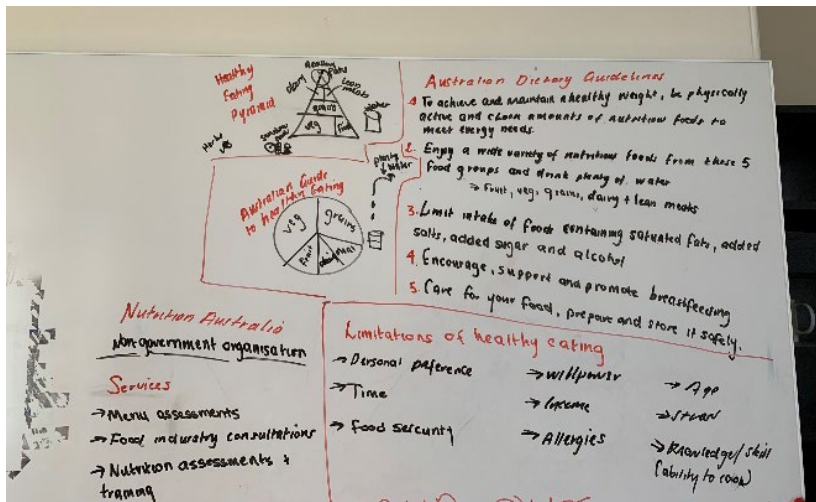 Healthy
Eating
Pyramid
Healthy
Fats
dairy
Lean
meats
grains
veg
Fruit
water
Herbs
Australian Guide
to healthy Eating
veg
grains
Fruit
plenty
water
Australian Dietary Guidelines
To achieve and maintain a healthy weight, be physically
active and amounts of nutrition foods to
meet energy needs.
2. Enjoy a wide variety of nutrition foods from these 5
food groups and drink plenty of water
→ Fruit, veg, grains, dairy + lean meats
3. Limit intake of foods containing fats, added
salts, added sugar and alcohol
4. Encourage, support and promote breastfeeding
5. Care for your food, prepare and store it safely.
Nutrition Australia
Non-government organisation
Services
→ Menu assessments
→ Food industry consultations
→ Nutrition assessments +
training
Limitations of healthy eating
→ Personal preference
→ Time
→ Food security
→ Willpower
→ Income
→ Allergies
→ Age
→
→ Knowledge/skill
(ability to cook)